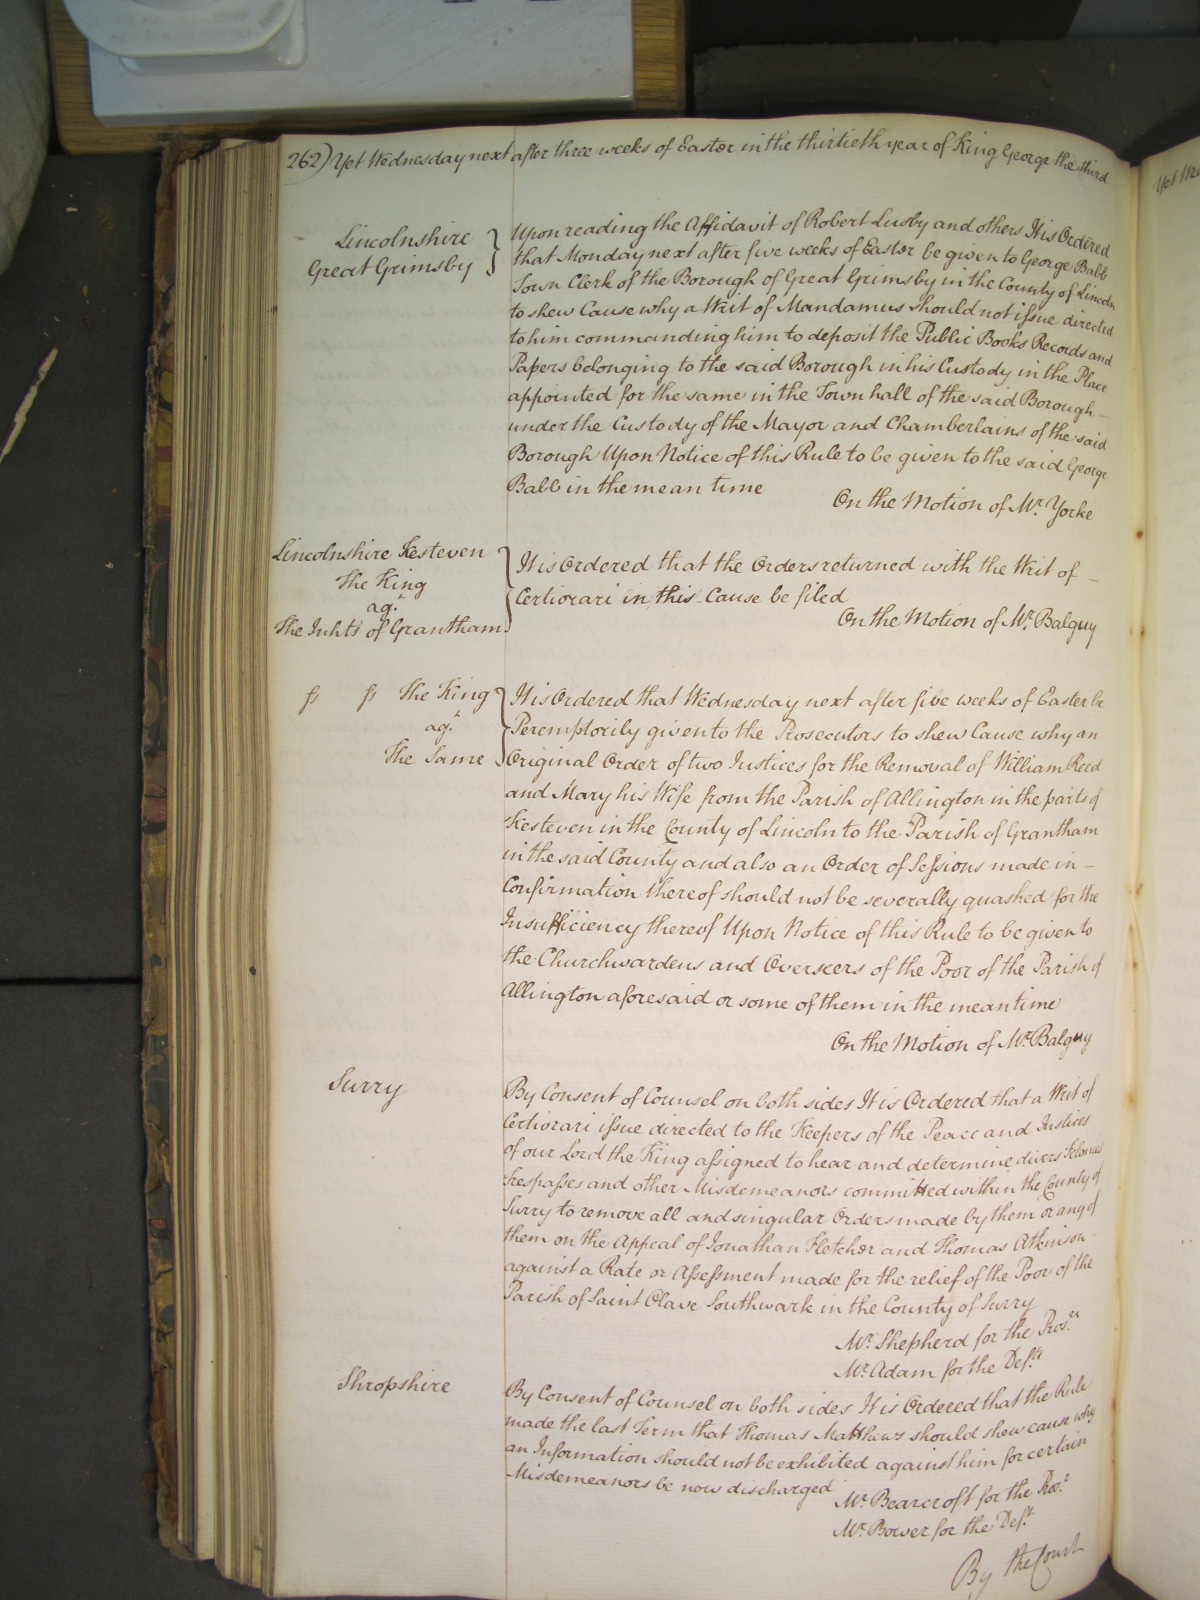 262) Yet Wednesday next after three weeks of Easter in the thirtieth year of King George the third
Lincolnshire
Great Grimsby
Upon reading the Affidavit of Robert Lusby and others It is Ordered
that Monday next after five weeks of Easter be given to George Babb
Town Clerk of the Borough of Great Grimsby in the County of Lincoln
to shew Cause why a Writ of Mandamus should not issue directed
to him commanding him to deposit the Public Books Records and
Papers belonging to the said Borough in his Custody in the Place
appointed for the same in the Town hall of the said Borough
under the Custody of the Mayor and Chamberlains of the said
Borough Upon Notice of this Rule to be given to the said George
Babb in the mean time
On the Motion of Mr. Yorke
Lincolnshire Kesteven
The King
agt.
The Inhts of Grantham
It is Ordered that the Orders returned with the Writ of
Certiorari in this Cause be filed
On the Motion of Mr. Balguy
ss ss The King
agt.
The Same
It is Ordered that Wednesday next after five weeks of Easter be
Peremptorily given to the Prosecutors to shew Cause why an
Original Order of two Justices for the Removal of William Reed
and Mary his Wife from the Parish of Allington in the parts of
Kesteven in the County of Lincoln to the Parish of Grantham
in the said County and also an Order of Sessions made in
Confirmation thereof should not be severally quashed for the
Insufficiency thereof Upon Notice of this Rule to be given to
the Churchwardens and Overseers of the Poor of the Parish of
Allington aforesaid or some of them in the mean time
On the Motion of Mr. Balguy
Surry
By Consent of Counsel on both sides It is Ordered that a Writ of
Certiorari issue directed to the Keepers of the Peace and Justices
of our Lord the King assigned to hear and determine divers Felonies
Trespasses and other Misdemeanors committed within the County of
Surry to remove all and singular Orders made by them or any of
them on the Appeal of Jonathan Fletcher and Thomas Atkinson
against a Rate or Assessment made for the relief of the Poor of the
Parish of Saint Olave Southwark in the County of Surry
Mr. Shepherd for the Pros.rs
Mr. Adam for the Def.ts
Shropshire
By Consent of Counsel on both sides It is Ordered that the Rule
made the last Term that Thomas Matthews should shew cause why
an Information should not be exhibited against him for certain
Misdemeanors be now discharged
Mr. Bearcroft for the Pros.r
Mr. Bower for the Def.t
By the Court